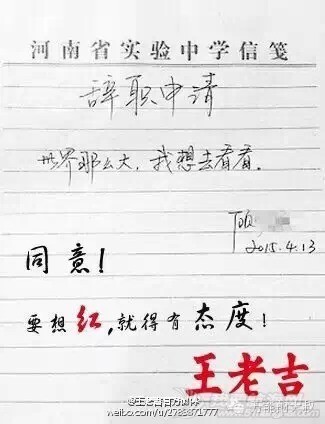 河南省实验中学信笺
辞职申请
世界那么大，我想去看看。
顾
2015.4.13
同意！
要想红，就得有态度！
王老吉
@王老吉官方媒体
weibo.com/u/2783871777